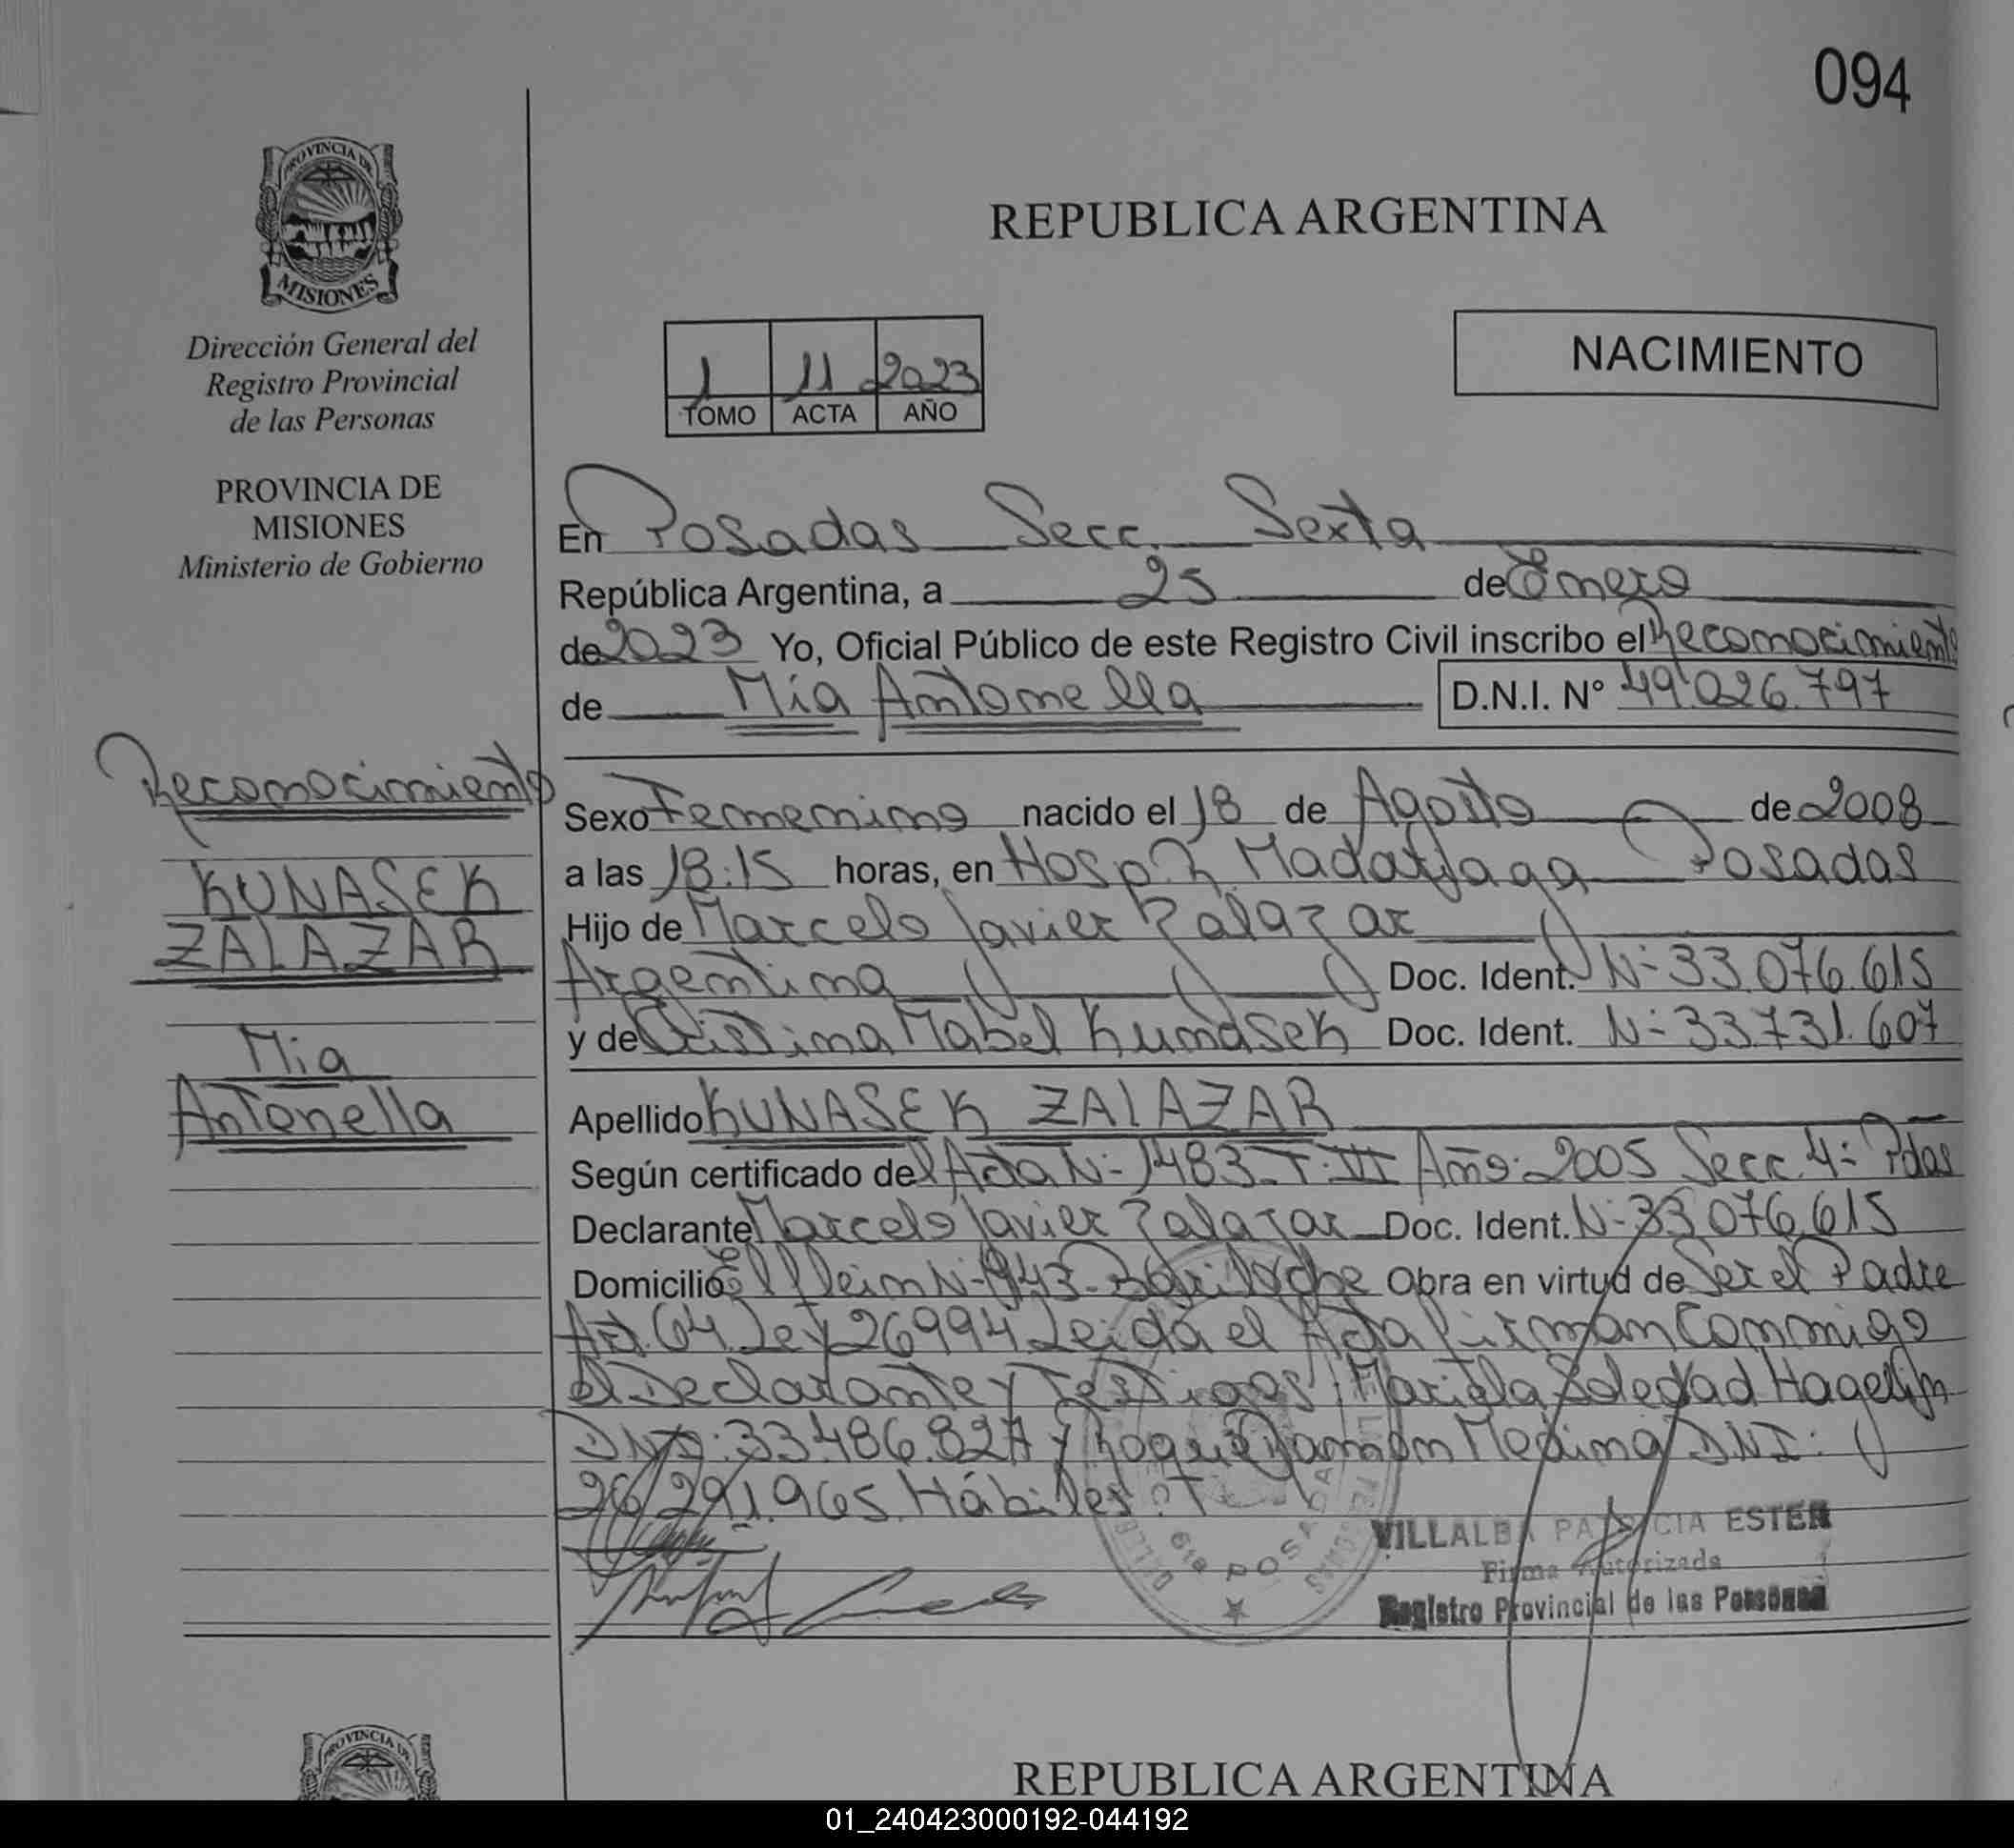 094
PROVINCIA DE
MISIONES
Dirección General del
Registro Provincial
de las Personas
PROVINCIA DE
MISIONES
Ministerio de Gobierno
REPUBLICA ARGENTINA
NACIMIENTO
1 11 2023
TOMO ACTA AÑO
En Posadas Secc. Sexta
República Argentina, a 25 de Enero
de 2023 Yo, Oficial Público de este Registro Civil inscribo el Reconocimiento
de Mía Antonella D.N.I. N° 49.026.797
Reconocimiento
KUNASEK
ZALAZAR
Mia
Antonella
Sexo Femenino nacido el 18 de Agosto de 2008
a las 18:15 horas, en Hosp. R. Madariaga Posadas
Hijo de Marcelo Javier Zalazar
Argentina Doc. Ident. N- 33.076.615
y de Cristina Mabel Kunasek Doc. Ident. N- 33.731.607
Apellido KUNASEK ZALAZAR
Según certificado del Acta N- 1483 T. III Año: 2005 Secc. 4- Pdas
Declarante Marcelo Javier Zalazar Doc. Ident. N- 33.076.615
Domicilio N- 1943 Bariloche Obra en virtud de Ser el Padre
Art. 64 Ley 26994 Leida el Acta firman Conmigo
el Declarante y Testigos: Mariela Soledad Hagelin
DNI: 33.486.827 y Roque Ramon Medina DNI:
26.291.965. Hábiles
POSADAS
VILLALBA PATRICIA ESTER
Firma Autorizada
Registro Provincial de las Personas
PROVINCIA DE
REPUBLICA ARGENTINA
01_240423000192-044192